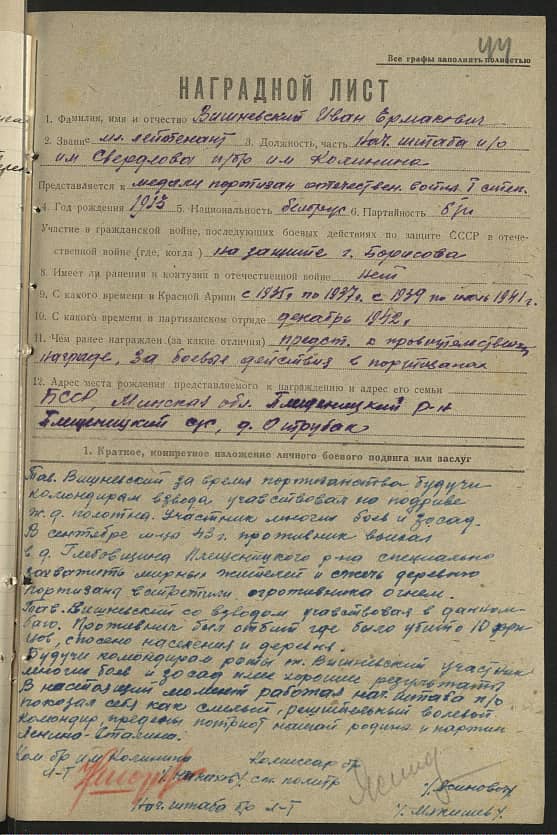 44
Все графы заполнять полностью
НАГРАДНОЙ ЛИСТ
1. Фамилия, имя и отчество Вишневский Иван Ермакович
2. Звание мл. лейтенант 3. Должность, часть Нач. штаба п/о
им Свердлова п/бр им Калинина
Представляется к медали партизан отечествен. войны I степ.
4. Год рождения 1913 5. Национальность белорус 6. Партийность б/п
Участие в гражданской войне, последующих боевых действиях по защите СССР в отече-
ственной войне (где, когда) на защите г. Борисова
8. Имеет ли ранения и контузии в отечественной войне нет
9. С какого времени в Красной Армии с 1935г по 1937г. с 1939 по июль 1941 г.
10. С какого времени в партизанском отряде декабрь 1942г
11. Чем ранее награжден (за какие отличия) предст. к правительствен
награде, за боевые действия в партизанах
12. Адрес места рождения представляемого к награждению и адрес его семьи
БССР, Минская обл. Плещеницкий р-н
Плещеницкий с/с, д. Отрубак
1. Краткое, конкретное изложение личного боевого подвига или заслуг
Тов. Вишневский за время партизанства будучи
командирам взвода участвовал на подриве
ж.д. полотна. Участник многих боев и засад.
В сентябре м-ца 43 г. противник выехал
в д. Глебовщина Плещеницкого р-на специально
захватить мирных жителей и сжечь деревню
партизана встретили противника огнем.
Тов. Вишневский со взводом участвовал в данном
бою. Противник был отбит где было убито 10 фри-
цов, спасено население и деревня.
Будучи командирам роты т. Вишневский участник
многих боев и засад имел хорошие результаты
В настоящий момент работая нач. штаба п/о
показал себя как смелый, решительный волевой
командир преданы патриот нашой родины и партии
Ленина-Сталина.
Ком. бр им Калинина Комиссар бр
Л-Т ст. политр /Ясинович/
Нач. штаба бр Л-Т